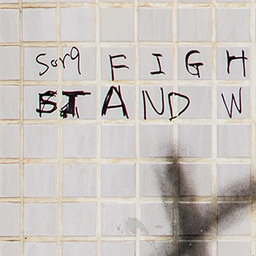 Sorg FIGH
STAND W